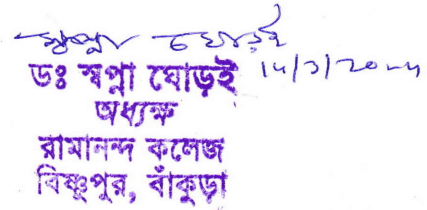 স্বপ্না ঘোড়ই
ডঃ স্বপ্না ঘোড়ই
অধ্যক্ষ
রামানন্দ কলেজ
বিষ্ণুপুর, বাঁকুড়া